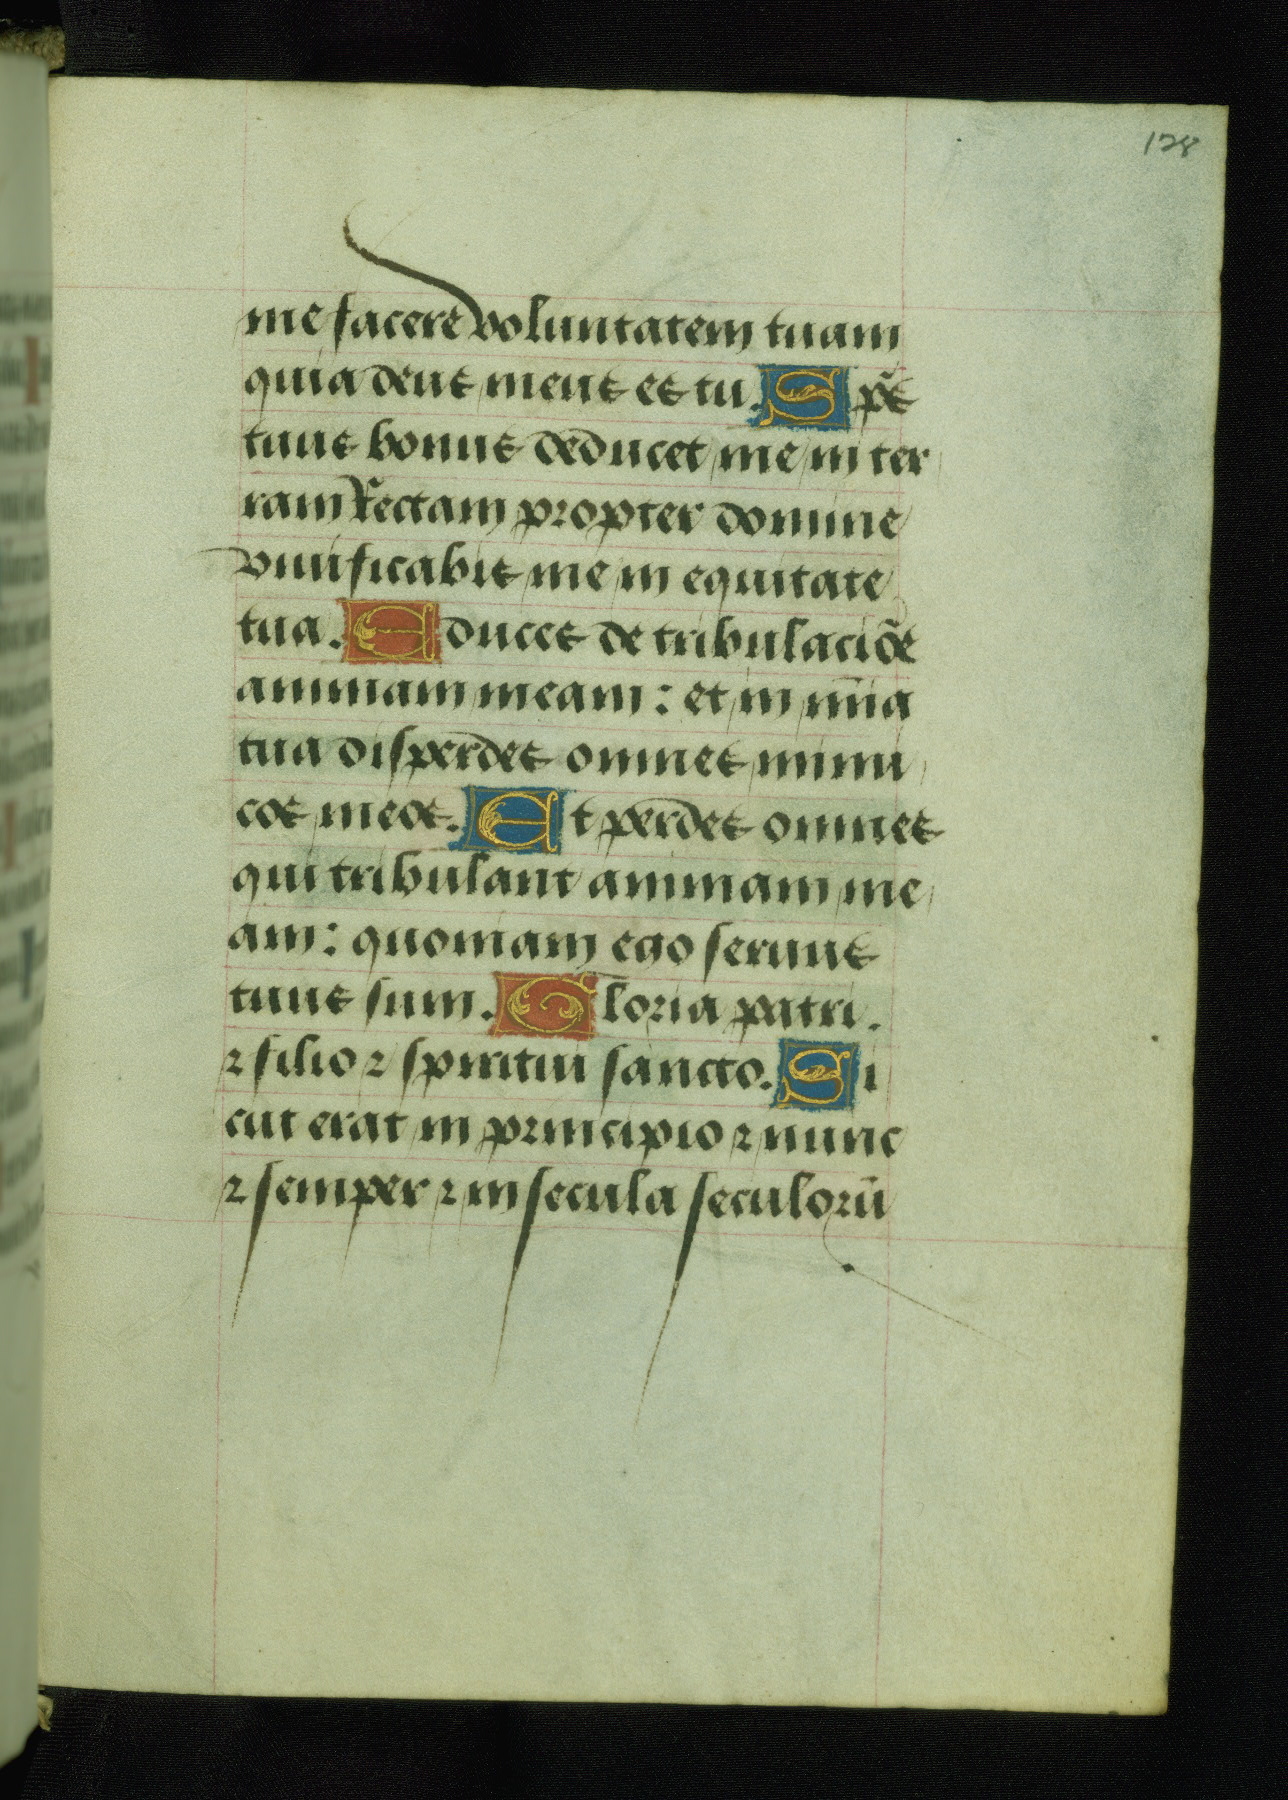 128
me facere voluntatem tuam
quia deus meus es tu. Sp̃s
tuus bonus deducet me in ter
ram rectam propter domine
viuificabis me in equitate
tua. Educes de tribulaciõe
animam meam: et in mĩa
tua disperdes omnes inimi
cos meos. Et perdes omnes
qui tribulant animam me
am: quoniam ego seruus
tuus sum. Gloria patri.
⁊ filio ⁊ spiritui sancto. Si
cut erat in principio ⁊ nunc
⁊ semper ⁊ in secula seculorũ